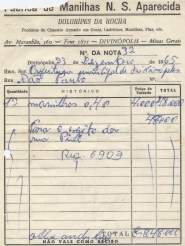 Fábrica de Manilhas N. S. Aparecida
DOLORÍPES DA ROCHA
Produtos de Cimento Armado em Geral, Ladrilhos, Manilhas, Pias, etc.
Av. Maranhão, 360 — Fone 1871 — DIVINÓPOLIS — Minas Gerais
Nº DA NOTA 32
Divinópolis 23 de Dezembro de 1965
Ilmo. Snr. Prefeitura Municipal de Divinópolis
Rua São Paulo Nº
Quantidade HISTÓRICO Preço da Unidade TOTAL
12 manilhas 0,40 4.000 48.000
48.000
Para
Rua
Req. 6909
TOTAL Cr$ 48.000
NÃO VALE COMO RECIBO